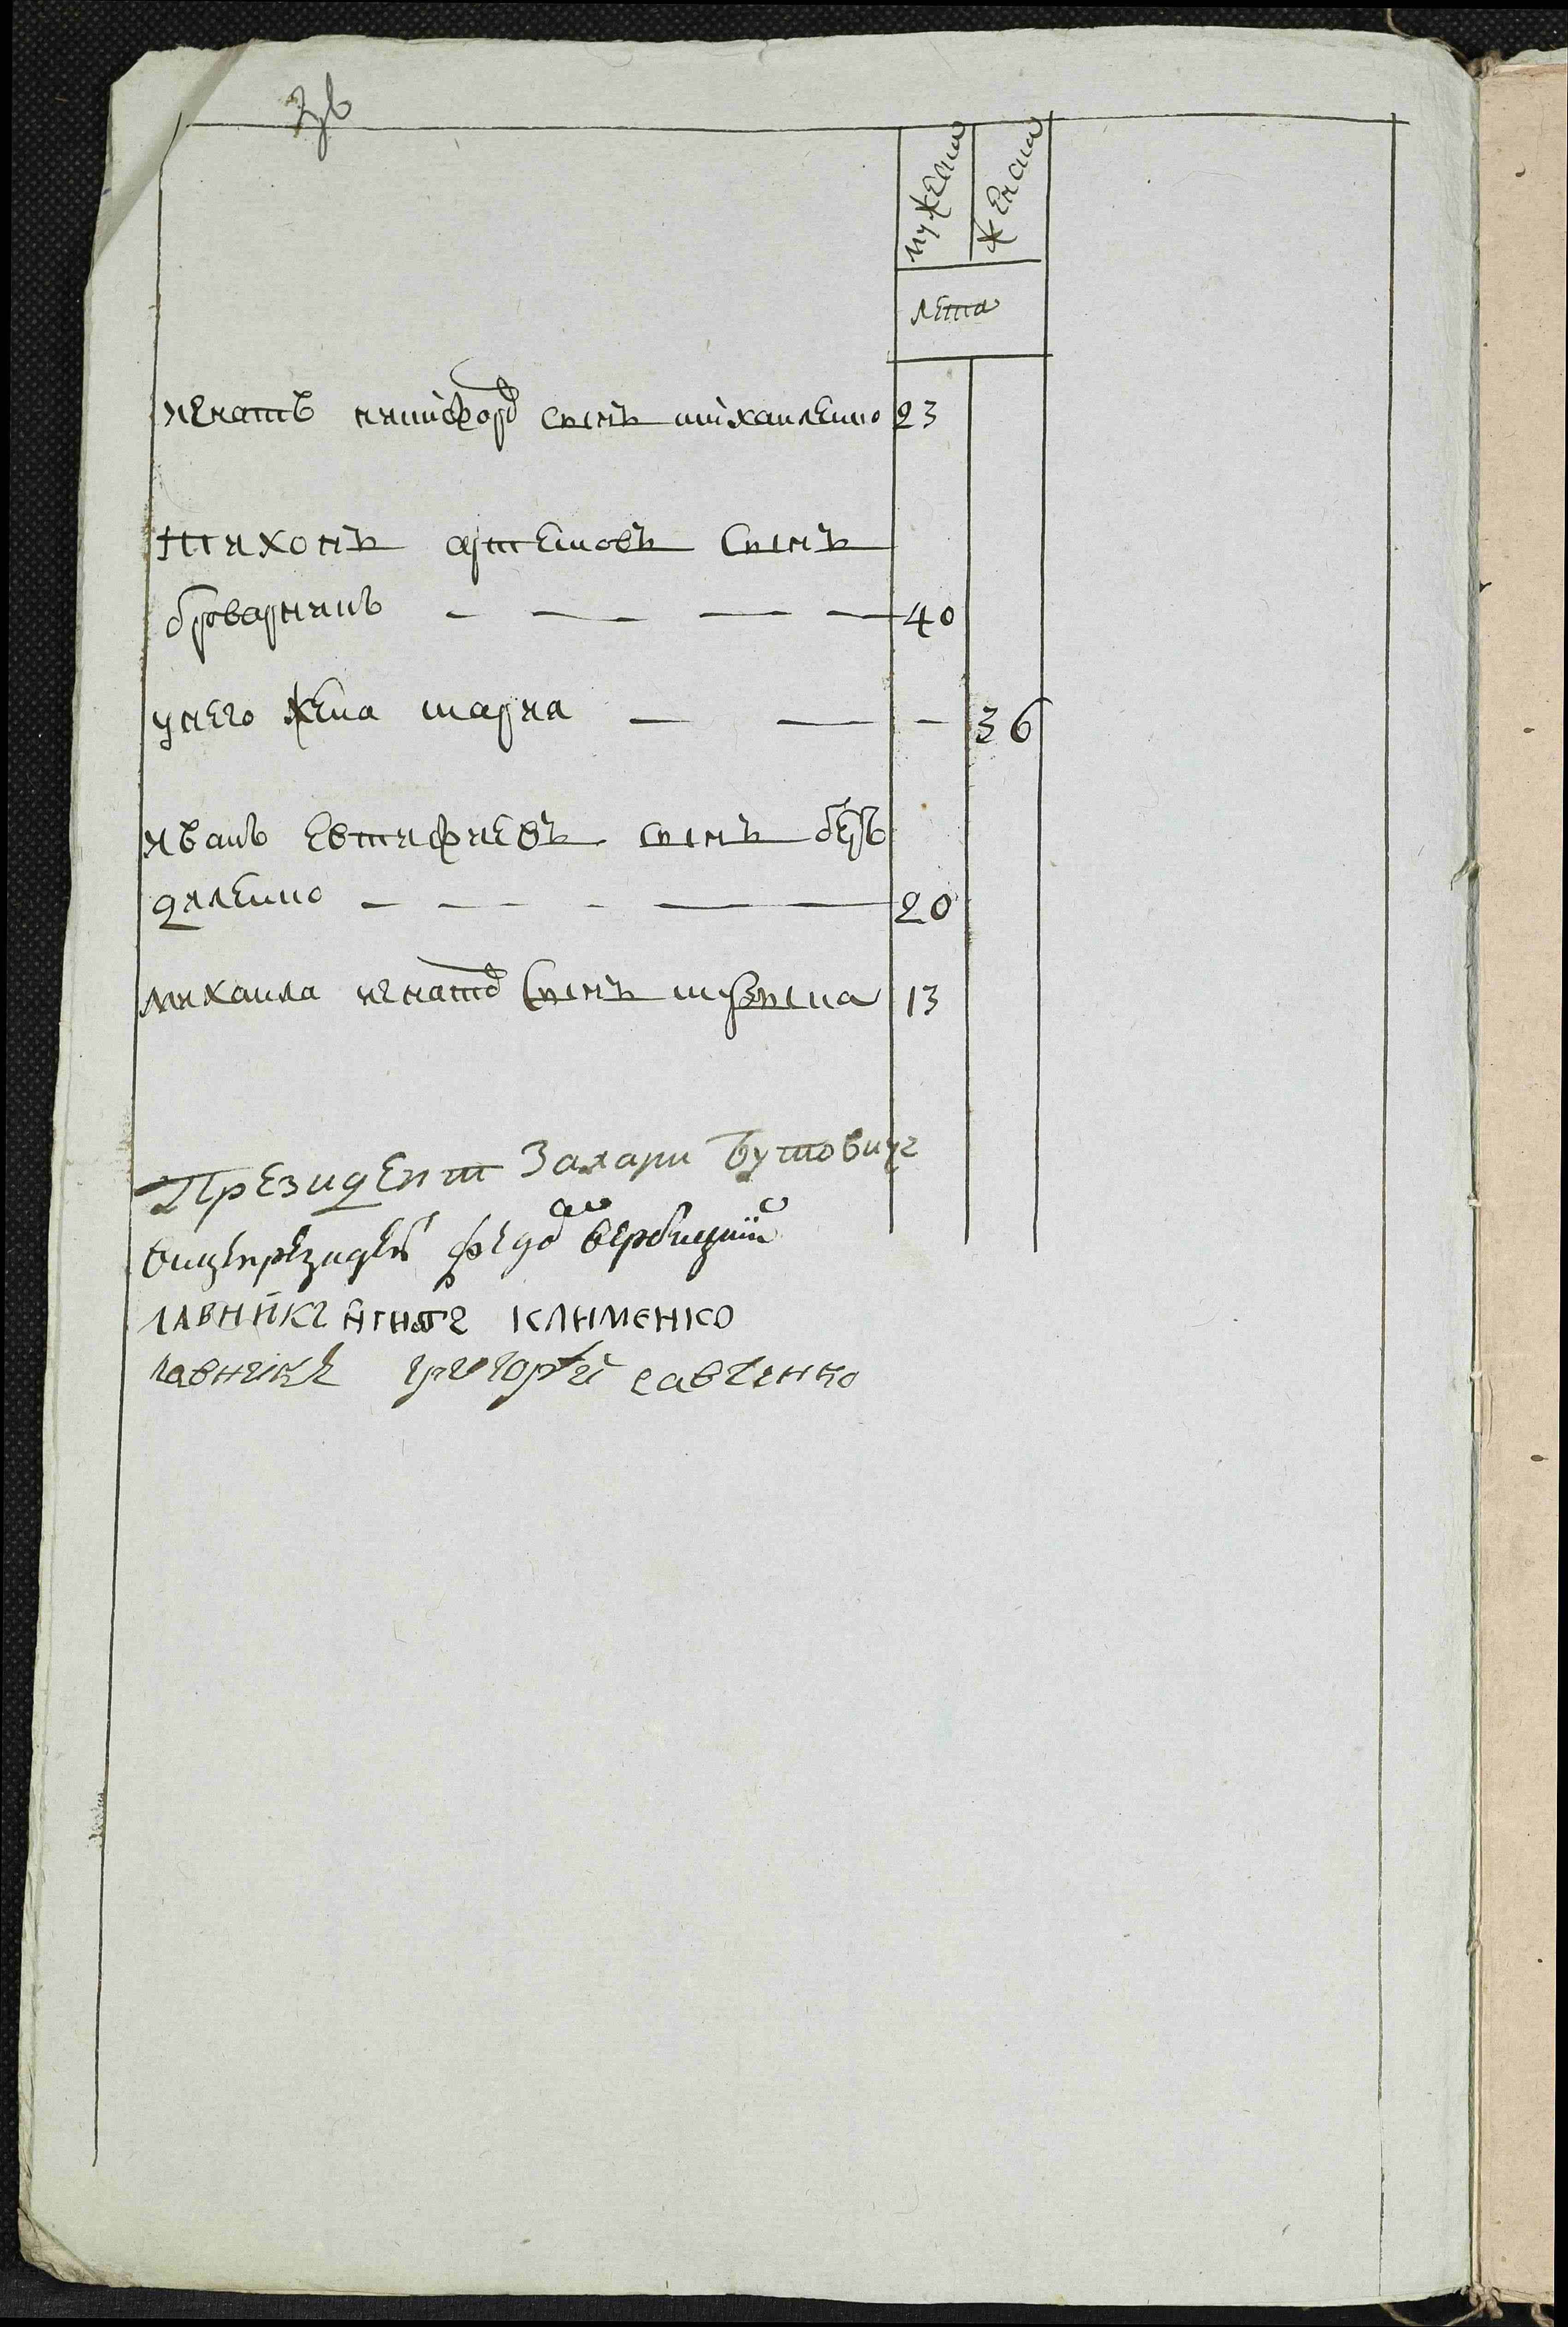 мужска женска
лета
игнатъ никифоро сынъ михаиленко 23
тихонъ артемовъ сынъ
броварникъ — — — — 40
унего жена мария — — — 36
иванъ евтифиевъ сынъ без
диленко — — — — — — 20
михаила игнато сынъ 13
Президент Захари Бутовичъ
вицепрезиден федо вербицкий
лавникъ игнатъ клименко
лавникъ григорий савченко